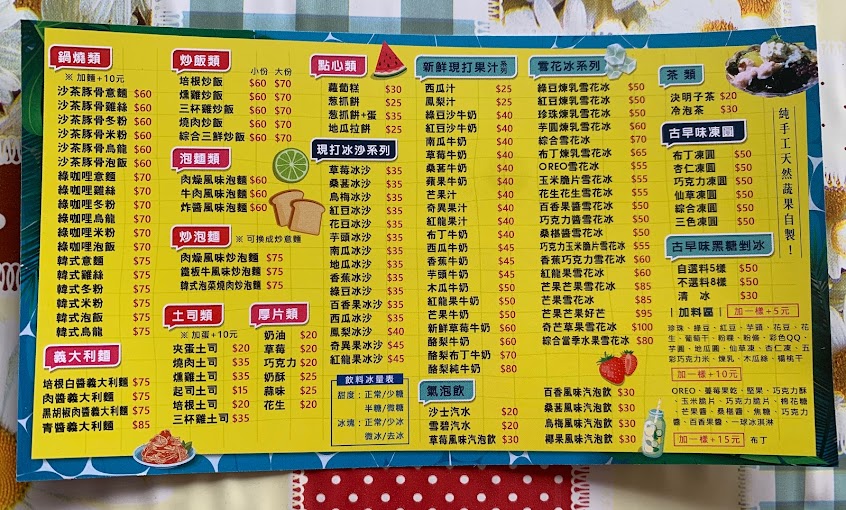 鍋燒類
※ 加麵+10元
沙茶豚骨意麵 $60
沙茶豚骨雞絲 $60
沙茶豚骨冬粉 $60
沙茶豚骨米粉 $60
沙茶豚骨烏龍 $60
沙茶豚骨泡飯 $60
綠咖哩意麵 $70
綠咖哩雞絲 $70
綠咖哩冬粉 $70
綠咖哩烏龍 $70
綠咖哩米粉 $70
綠咖哩泡飯 $70
韓式意麵 $75
韓式雞絲 $75
韓式冬粉 $75
韓式米粉 $75
韓式泡飯 $75
韓式烏龍 $75
義大利麵
培根白醬義大利麵 $75
肉醬義大利麵 $75
黑胡椒肉醬義大利麵 $85
青醬義大利麵 $75
炒飯類
小份 大份
培根炒飯 $60 $70
燻雞炒飯 $60 $70
三杯雞炒飯 $60 $70
燒肉炒飯 $60 $70
綜合三鮮炒飯 $60 $70
泡麵類
肉燥風味泡麵 $60
牛肉風味泡麵 $60
炸醬風味泡麵 $60
炒泡麵 ※ 可換成炒意麵
肉燥風味炒泡麵 $75
鐵板牛風味炒泡麵 $75
韓式泡菜燒肉炒泡麵 $75
土司類
※ 加蛋+10元
夾蛋土司 $20
燒肉土司 $35
燻雞土司 $35
起司土司 $15
培根土司 $20
三杯雞土司 $35
厚片類
奶油 $20
草莓 $20
巧克力 $20
奶酥 $25
蒜味 $25
花生 $20
點心類
蘿蔔糕 $30
蔥抓餅 $25
蔥抓餅+蛋 $35
地瓜拉餅 $25
現打冰沙系列
草莓冰沙 $35
桑葚冰沙 $35
烏梅冰沙 $35
紅豆冰沙 $35
花豆冰沙 $35
芋頭冰沙 $35
南瓜冰沙 $35
地瓜冰沙 $35
香蕉冰沙 $35
芒果冰沙 $35
百香果冰沙 $35
西瓜冰沙 $35
鳳梨冰沙 $40
奇異果冰沙 $45
紅龍果冰沙 $45
飲料冰量表
甜度：正常/少糖
半糖/微糖
冰塊：正常/少冰
微冰/去冰
新鮮現打果汁系列
西瓜汁 $25
鳳梨汁 $25
綠豆沙牛奶 $40
紅豆沙牛奶 $40
南瓜牛奶 $40
草莓牛奶 $40
桑葚牛奶 $40
蘋果牛奶 $40
芒果汁 $40
奇異果汁 $40
紅龍果汁 $40
布丁牛奶 $40
西瓜牛奶 $45
香蕉牛奶 $45
芋頭牛奶 $45
木瓜牛奶 $45
紅龍果牛奶 $50
芒果牛奶 $50
新鮮草莓牛奶 $60
酪梨牛奶 $60
酪梨布丁牛奶 $70
酪梨純牛奶 $80
氣泡飲
沙士汽水 $20
雪碧汽水 $20
草莓風味汽泡飲 $30
百香果風味汽泡飲 $30
桑葚風味汽泡飲 $30
烏梅風味汽泡飲 $30
椰果風味汽泡飲 $30
雪花冰系列
綠豆煉乳雪花冰 $50
紅豆煉乳雪花冰 $50
珍珠煉乳雪花冰 $50
芋圓煉乳雪花冰 $60
綜合雪花冰 $70
布丁煉乳雪花冰 $65
OREO雪花冰 $55
玉米脆片雪花冰 $55
花生花生雪花冰 $55
百香果醬雪花冰 $50
巧克力醬雪花冰 $50
桑椹醬雪花冰 $50
巧克力玉米脆片雪花冰 $55
香蕉巧克力雪花冰 $60
紅龍果雪花冰 $60
芒果芒果雪花冰 $85
芒果雪花冰 $85
芒果芒果好芒 $95
奇芒草果雪花冰 $100
綜合當季水果雪花冰 $80
茶 類
決明子茶 $20
冷泡茶 $30
古早味凍圓
布丁凍圓 $50
杏仁凍圓 $50
巧克力凍圓 $50
仙草凍圓 $50
綜合凍圓 $50
三色凍圓 $50
古早味黑糖剉冰
自選料5樣 $50
不選料8樣 $50
清 冰 $30
加料區 加一樣+5元
珍珠、綠豆、紅豆、芋頭、花豆、花
生、葡萄干、粉粿、粉條、彩色QQ、
芋圓、地瓜圓、仙草凍、杏仁凍、五
彩巧克力米、煉乳、木瓜絲、楊桃干
加一樣+10元
OREO、蔓莓果乾、堅果、巧克力酥
、玉米脆片、巧克力脆片、棉花糖
、芒果醬、桑椹醬、焦糖、巧克力
醬、百香果醬、一球冰淇淋
加一樣+15元 布丁
純手工天然蔬果自製！